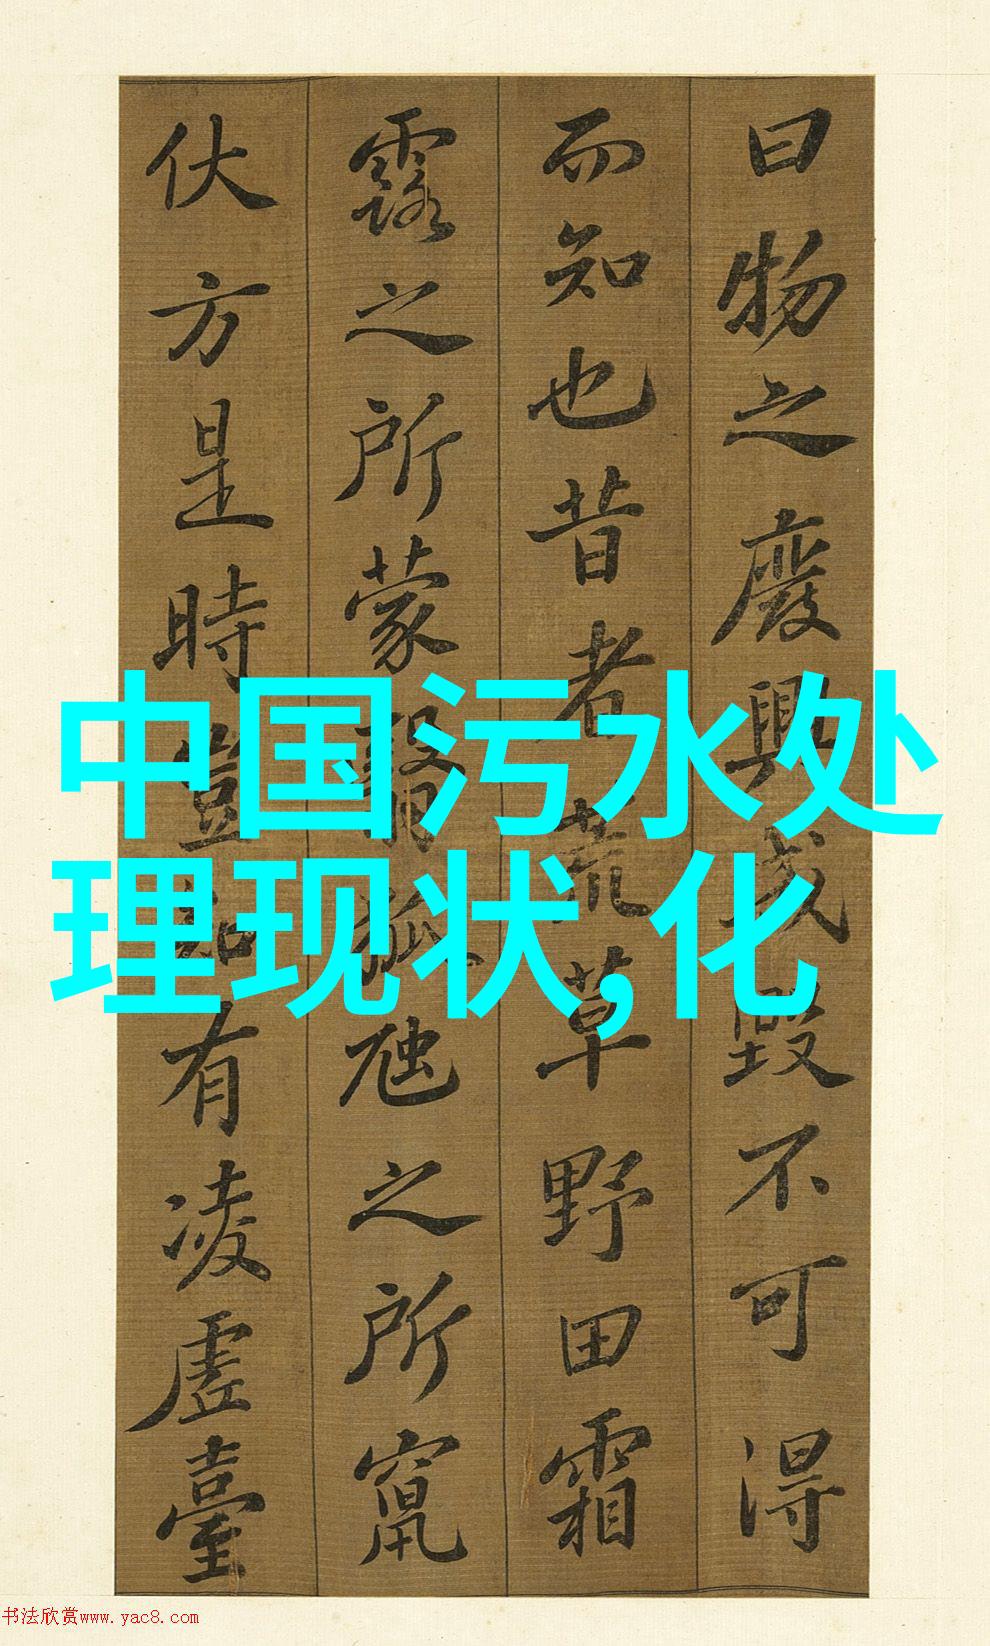 曰物之廢興成毀不可得
而知也昔者荒草野田霜
露之所蒙翳狐虺之所竄
伏方是時豈知有凌虛臺
中国污水处
理现状,化
书法欣赏www.yac8.com